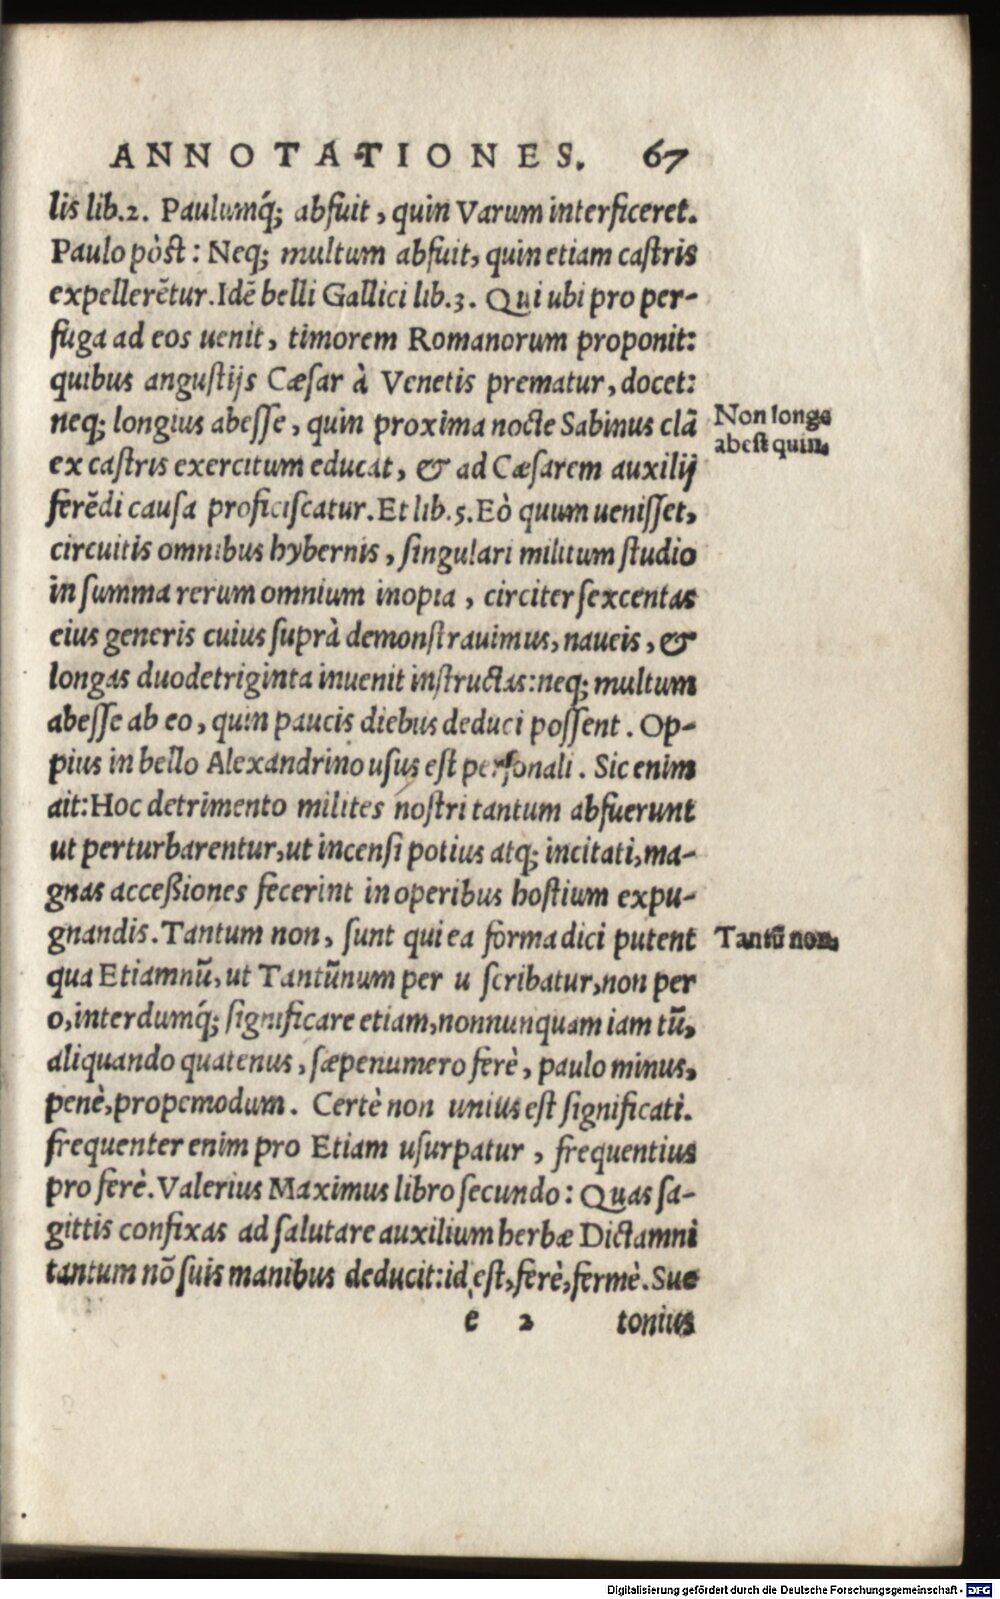 ANNOTATIONES. 67
lis lib.2. Paulumq́; abfuit, quin Varum interficeret.
Paulo pòst: Neq; multum abfuit, quin etiam castris
expellerētur. Idē belli Gallici lib.3. Qui ubi pro per-
fuga ad eos uenit, timorem Romanorum proponit:
quibus angustijs Cæsar à Venetis prematur, docet:
neq; longius abesse, quin proxima nocte Sabinus clā
ex castris exercitum educat, & ad Cæsarem auxilij
ferēdi causa proficiscatur. Et lib.5. Eò quum uenisset,
circuitis omnibus hybernis, singulari militum studio
in summa rerum omnium inopia, circiter sexcentas
eius generis cuius suprà demonstrauimus, naueis, &
longas duodetriginta inuenit instructas: neq; multum
abesse ab eo, quin paucis diebus deduci possent. Op-
pius in bello Alexandrino usus est personali. Sic enim
ait: Hoc detrimento milites nostri tantum abfuerunt
ut perturbarentur, ut incensi potius atq; incitati, ma-
gnas acceßiones fecerint in operibus hostium expu-
gnandis. Tantum non, sunt qui ea forma dici putent
qua Etiamnū, ut Tantūnum per u scribatur, non per
o, interdumq́; significare etiam, nonnunquam iam tū,
aliquando quatenus, sæpenumero ferè, paulo minus,
penè, propemodum. Certè non unius est significati.
frequenter enim pro Etiam usurpatur, frequentius
pro ferè. Valerius Maximus libro secundo: Quas sa-
gittis confixas ad salutare auxilium herbæ Dictamni
tantum nō suis manibus deducit: id est, ferè, fermè. Sue
e 2 tonius
Non longe
abest quin.
Tantū non.
Digitalisierung gefördert durch die Deutsche Forschungsgemeinschaft - DFG